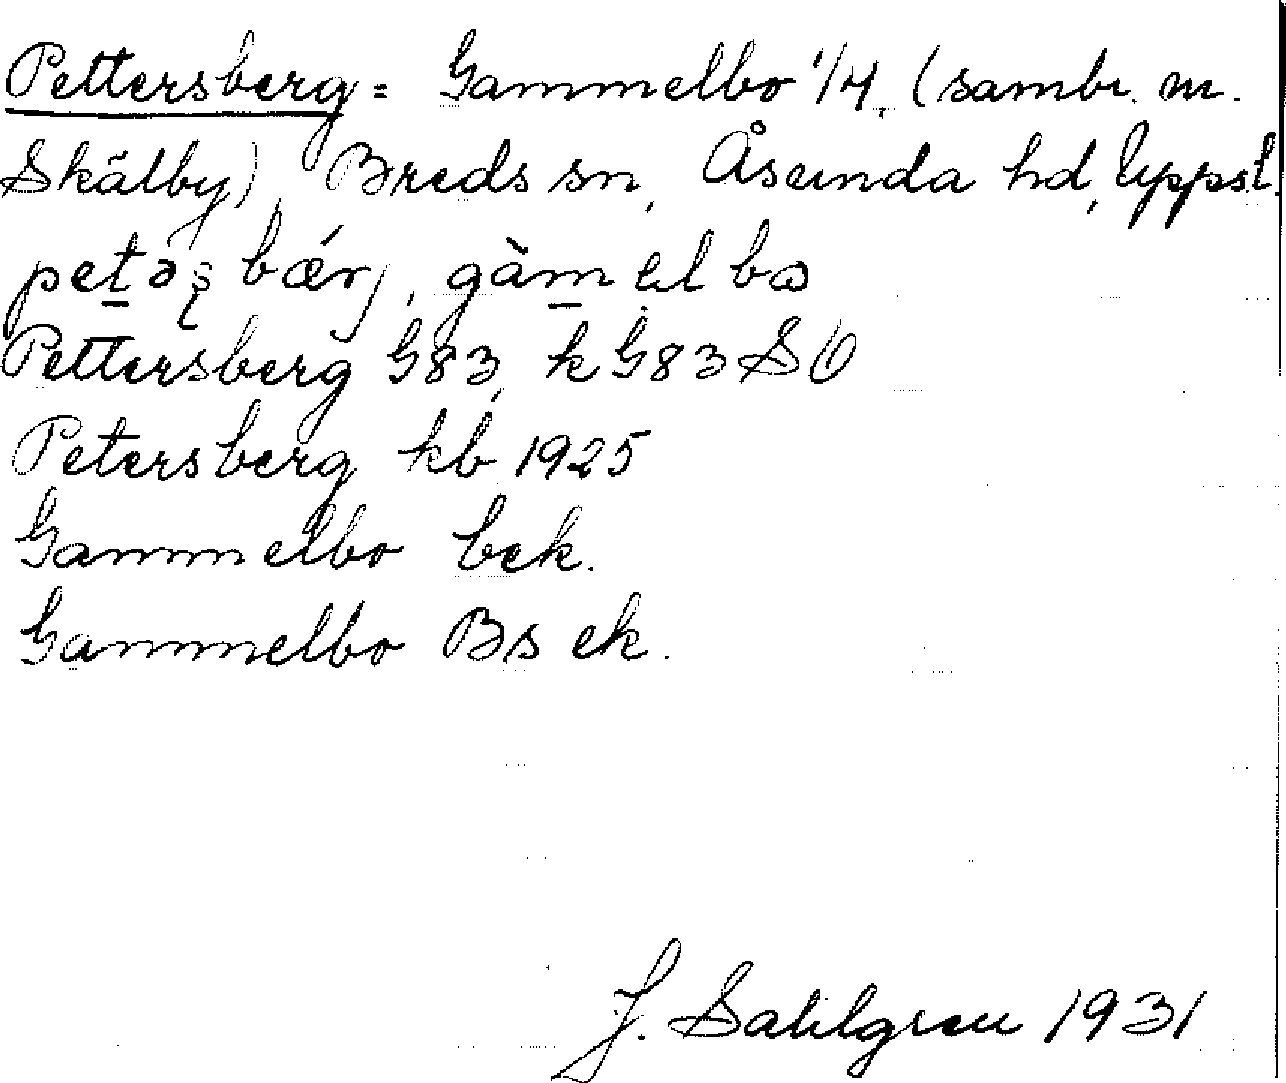 Pettersberg = Gammelbo 1/4, (sambr. m.
Skälby), Breds sn, Åsunda hd, Uppsl.
pet̲əʂbǽrj, gàm̲ɐlbɷ
Pettersberg G83, k G83 SO
Petersberg kb 1925
Gammelbo bek.
Gammelbo Bs ek.
J. Sahlgren 1931